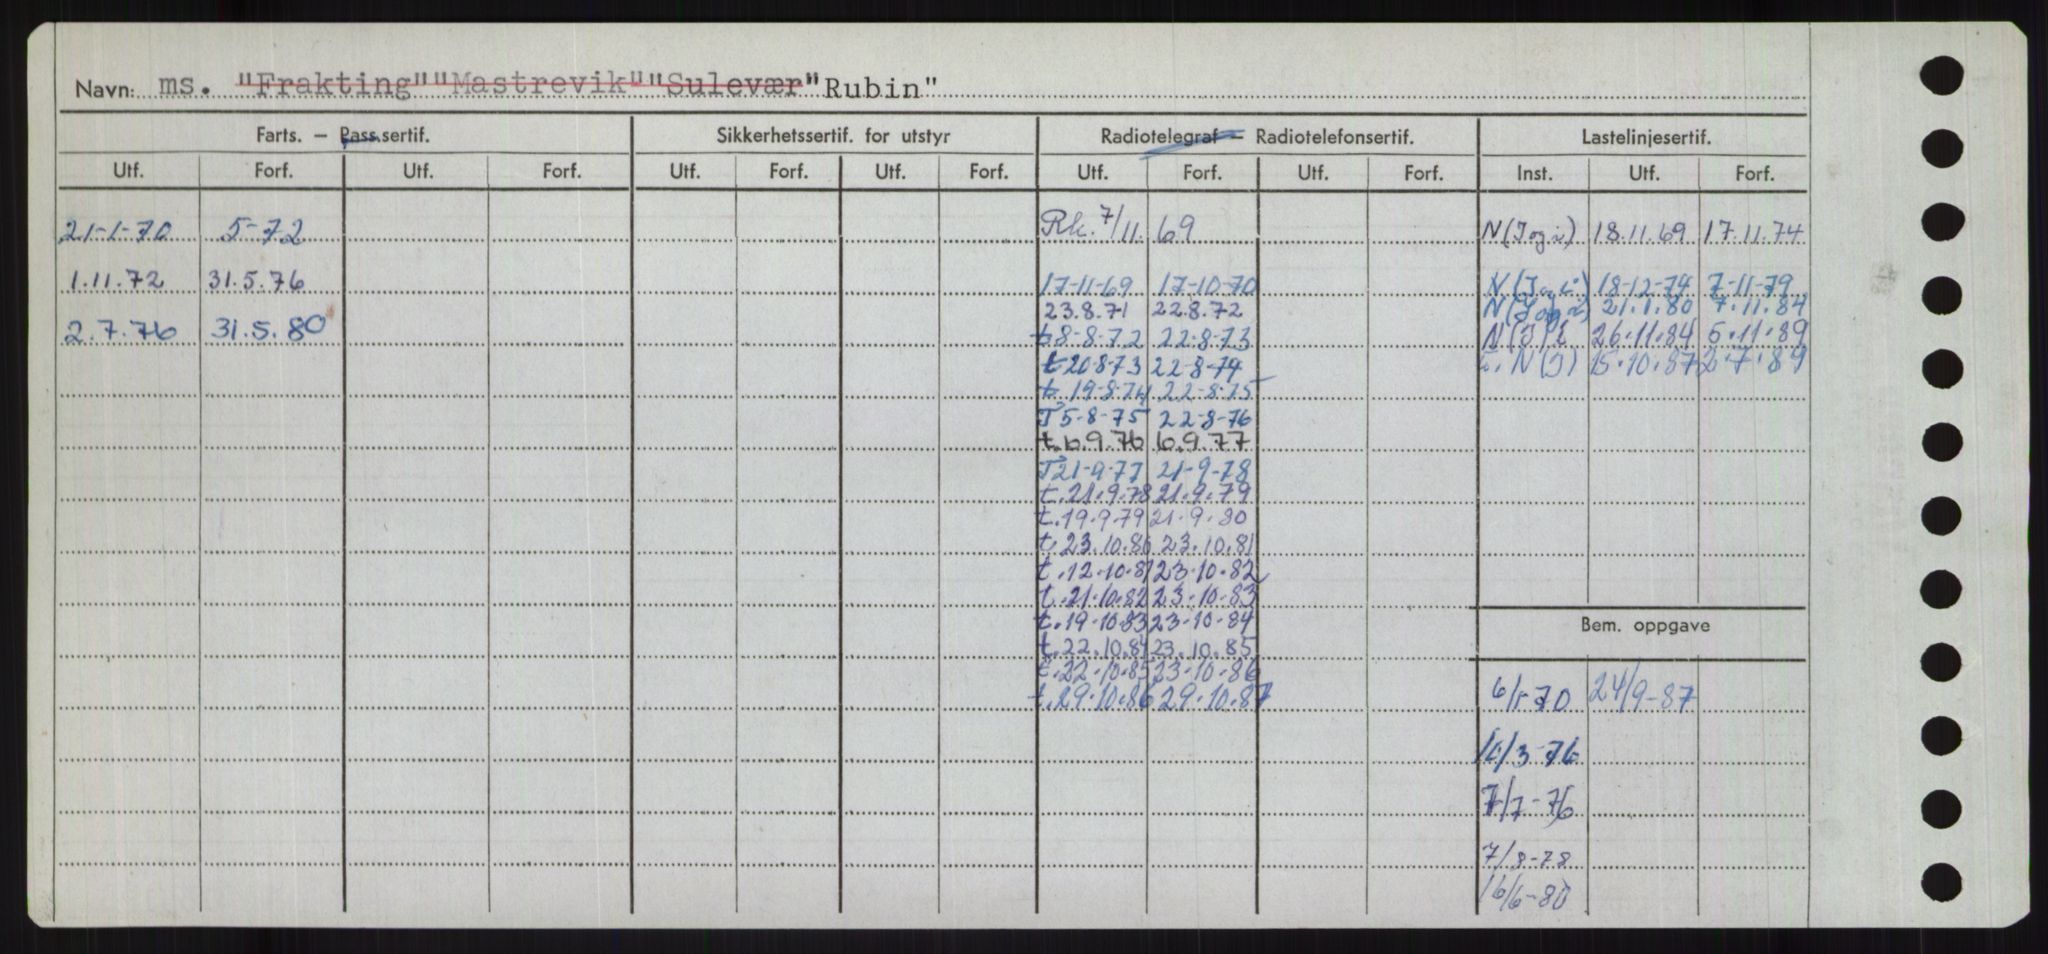 Navn: ms. "Frakting" "Mastrevik" "Sulevær" "Rubin"
Farts. — Pass.sertif. Sikkerhetssertif. for utstyr Radiotelegraf — Radiotelefonsertif. Lastelinjesertif.
Utf. Forf. Utf. Forf. Utf. Forf. Utf. Forf. Utf. Forf. Utf. Forf. Inst. Utf. Forf.
21-1-70 5-72 Rk. 7/11. 69 N(I og i) 18.11.69 17.11.74
1.11.72 31.5.76 17-11-69 17-10-70 N(I og i) 18-12-74 7-11-79
23.8.71 22.8.72 N(I og i) 21.1.80 7.11.84
2.7.76 31.5.80 t 8-8-72 22-8-73 N(I) 26.11.84 5.11.89
t 20-8-73 22-8-74 N(I) 15.10.87 2.7.89
t. 19-8-74 22-8-75
T 5-8-75 22-8-76
t. 6.9.76 6.9.77
T 21-9-77 21-9-78
t. 21.9.78 21.9.79
t. 19.9.79 21.9.80
t. 23.10.80 23.10.81
t. 12.10.81 23.10.82
t. 21.10.82 23.10.83
t. 19.10.83 23.10.84
Bem. oppgave
t. 22.10.84 23.10.85
t. 22.10.85 23.10.86
t. 29.10.86 29.10.87 6/1-70 24/9-87
/3-76
7/7-76
7/8-78
16/6-80